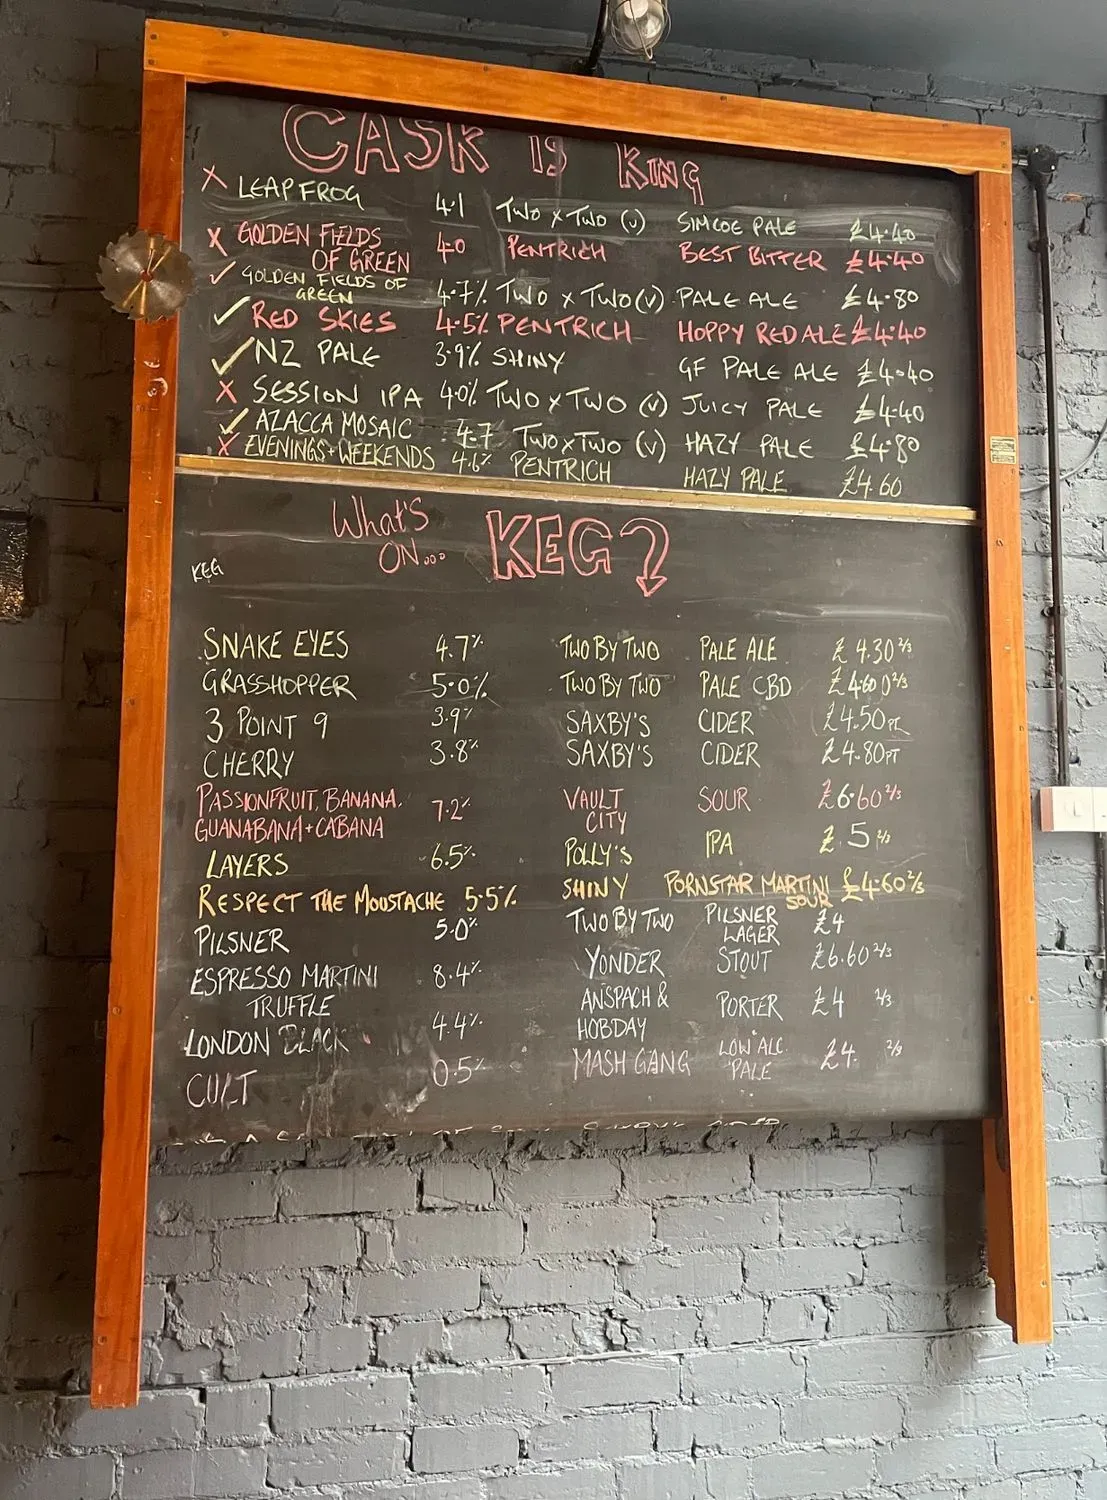 CASK IS KING
X LEAP FROG 4.1 TWO x TWO (V) SIMCOE PALE £4.40
X GOLDEN FIELDS OF GREEN 4.0 PENTRICH BEST BITTER £4.40
✓ GOLDEN FIELDS OF GREEN 4.7% TWO x TWO (V) PALE ALE £4.80
✓ RED SKIES 4.5% PENTRICH HOPPY RED ALE £4.40
✓ NZ PALE 3.9% SHINY GF PALE ALE £4.40
X SESSION IPA 4.0% TWO x TWO (V) JUICY PALE £4.40
✓ AZACCA MOSAIC 4.7 TWO x TWO (V) HAZY PALE £4.80
X EVENINGS + WEEKENDS 4.6% PENTRICH HAZY PALE £4.60
What's ON... KEG?
KEG
SNAKE EYES 4.7% TWO BY TWO PALE ALE £4.30 2/3
GRASSHOPPER 5.0% TWO BY TWO PALE CBD £4.60 2/3
3 POINT 9 3.9% SAXBY'S CIDER £4.50 PT
CHERRY 3.8% SAXBY'S CIDER £4.80 PT
PASSIONFRUIT, BANANA, GUANABANA + CABANA 7.2% VAULT CITY SOUR £6.60 2/3
LAYERS 6.5% POLLY'S IPA £5 2/3
RESPECT THE MOUSTACHE 5.5% SHINY PORNSTAR MARTINI SOUR £4.60 2/3
PILSNER 5.0% TWO BY TWO PILSNER LAGER £4
ESPRESSO MARTINI TRUFFLE 8.4% YONDER STOUT £6.60 2/3
LONDON BLACK 4.4% ANSPACH & HOBDAY PORTER £4 2/3
CULT 0.5% MASH GANG LOW ALC. PALE £4 2/3